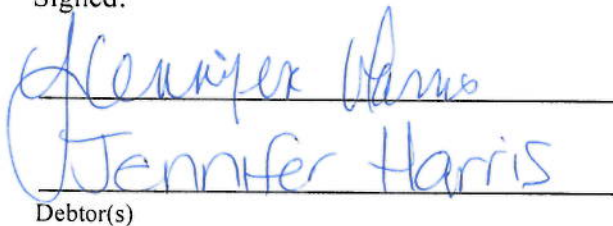 Signed:
Jennifer Harris
Jennifer Harris
Debtor(s)